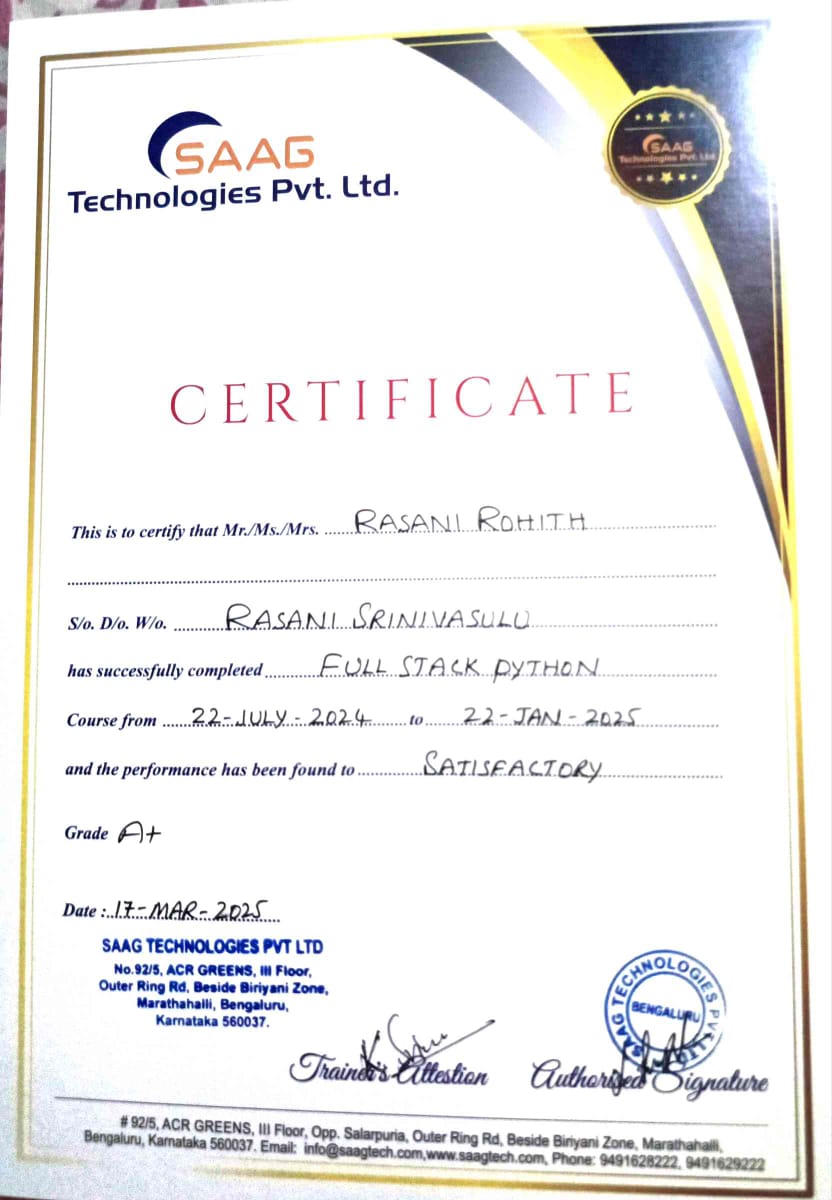 SAAG
Technologies Pvt. Ltd.
SAAG
Technologies Pvt. Ltd.
CERTIFICATE
This is to certify that Mr./Ms./Mrs. RASANI ROHITH
S/o. D/o. W/o. RASANI SRINIVASULU
has successfully completed FULL STACK PYTHON
Course from 22-JULY-2024 to 22-JAN-2025
and the performance has been found to SATISFACTORY
Grade A+
Date : 17-MAR-2025
SAAG TECHNOLOGIES PVT LTD
No.92/5, ACR GREENS, III Floor,
Outer Ring Rd, Beside Biriyani Zone,
Marathahalli, Bengaluru,
Karnataka 560037.
SAAG TECHNOLOGIES PVT LTD
BENGALURU
Trainer's Attestion
Authorised Signature
# 92/5, ACR GREENS, III Floor, Opp. Salarpuria, Outer Ring Rd, Beside Biriyani Zone, Marathahalli,
Bengaluru, Karnataka 560037. Email: info@saagtech.com,www.saagtech.com, Phone: 9491628222, 9491629222